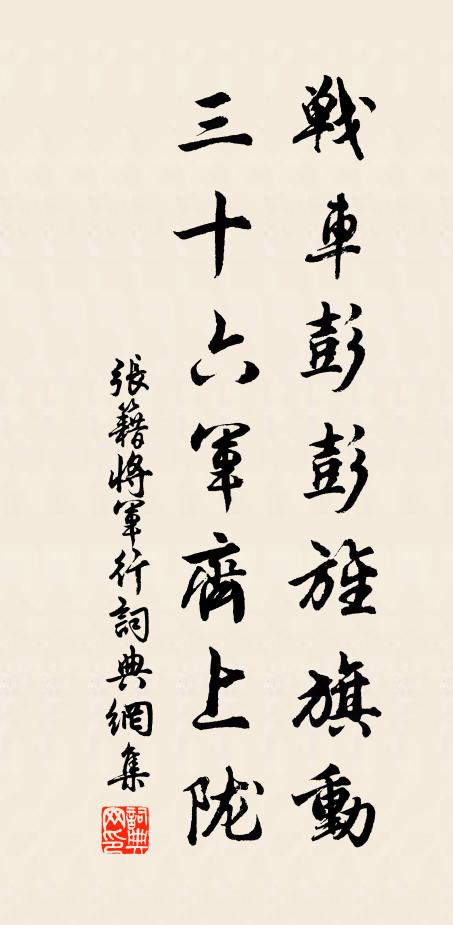 戦車彭彭旌旗動
三十六軍齊上陇
張籍將軍行詞典網集
詞典网印